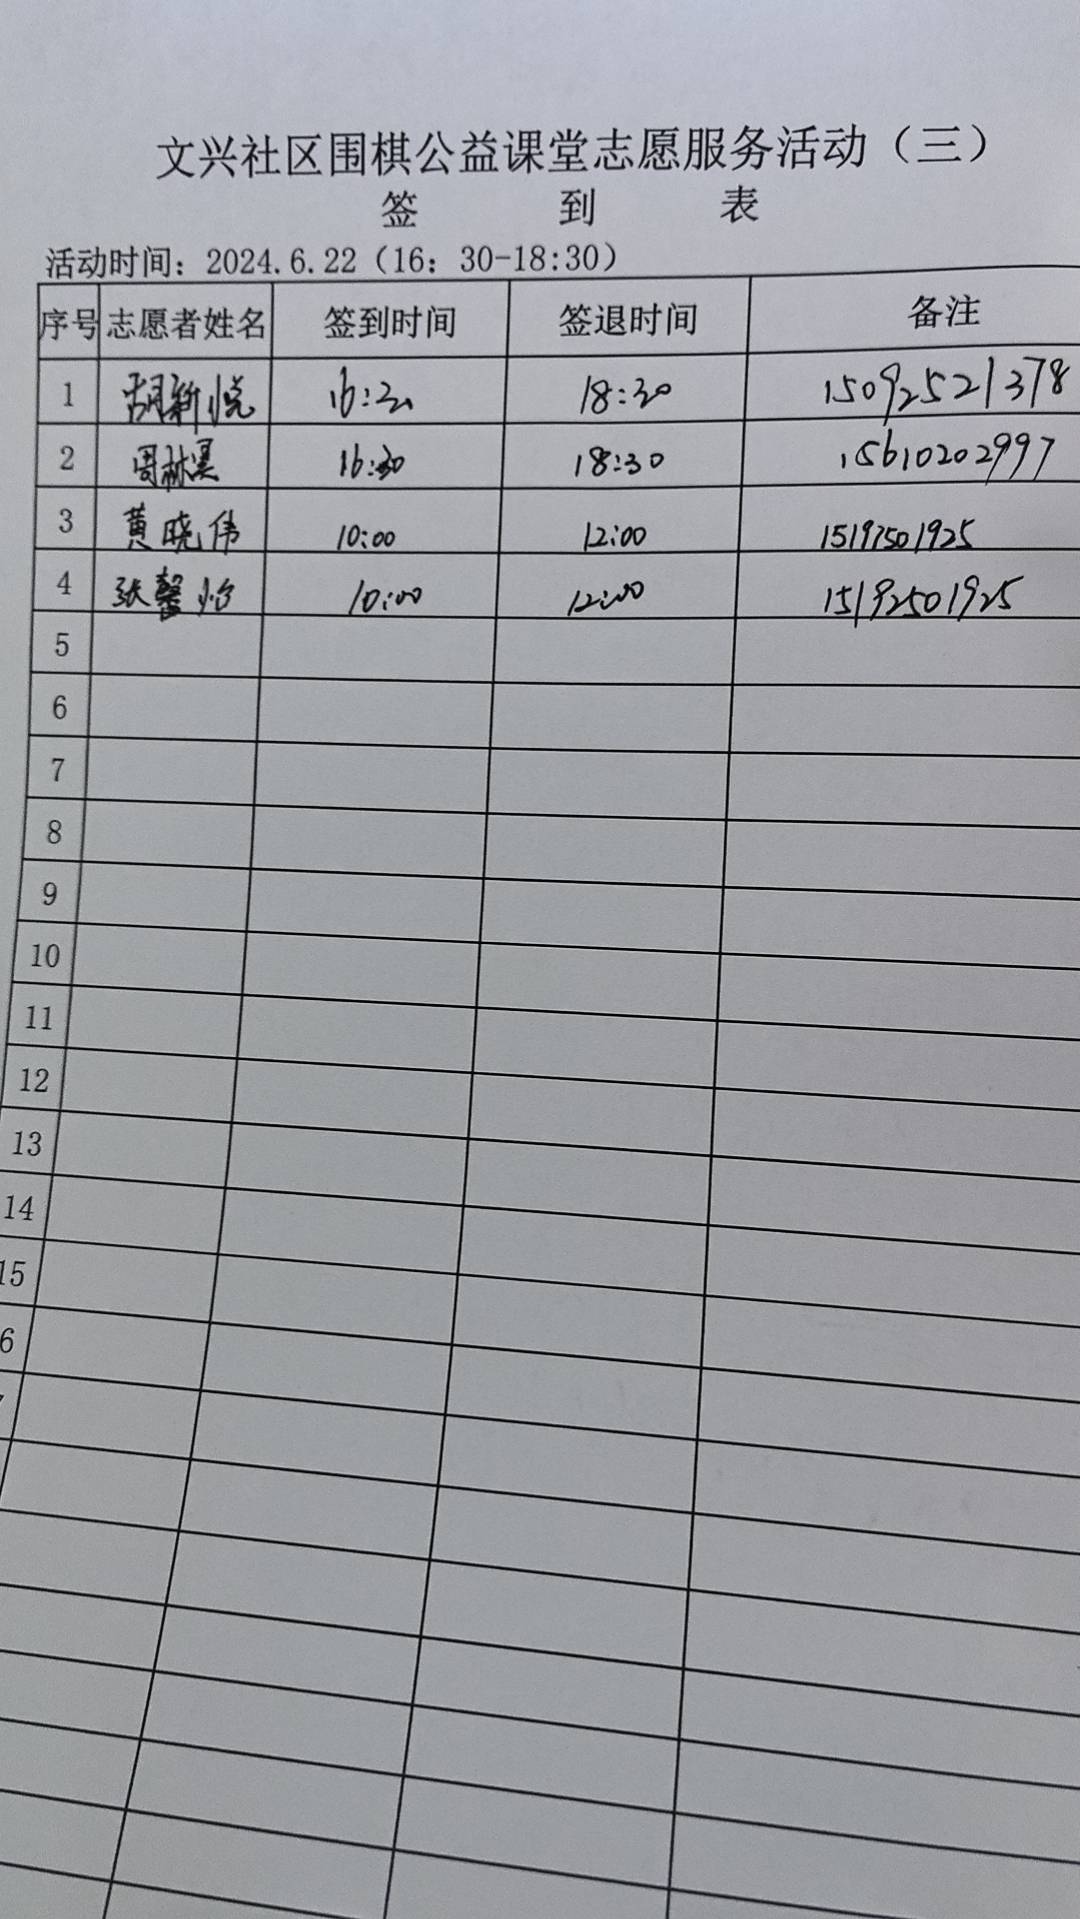 文兴社区围棋公益课堂志愿服务活动（三）
签 到 表
活动时间：2024.6.22（16：30-18:30）
序号 志愿者姓名 签到时间 签退时间 备注
1 胡新悦 16:30 18:30 15092521378
2 周林 16:30 18:30 15610202997
3 黄晓伟 10:00 12:00 15197501925
4 张馨怡 10:00 12:00 15192501925
5
6
7
8
9
10
11
12
13
14
15
6